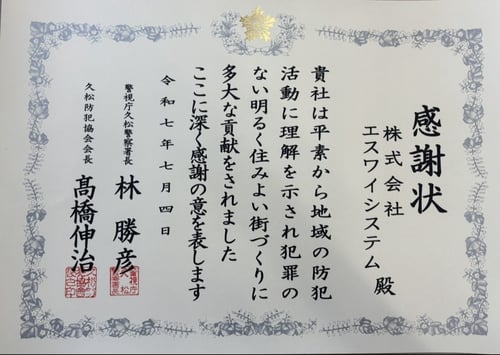 感謝状
株式会社
エスワイシステム 殿
貴社は平素から地域の防犯
活動に理解を示され犯罪の
ない明るく住みよい街づくりに
多大な貢献をされました
ここに深く感謝の意を表します
令和七年七月四日
警視庁久松警察署長 林 勝彦
久松防犯協会会長 髙橋伸治